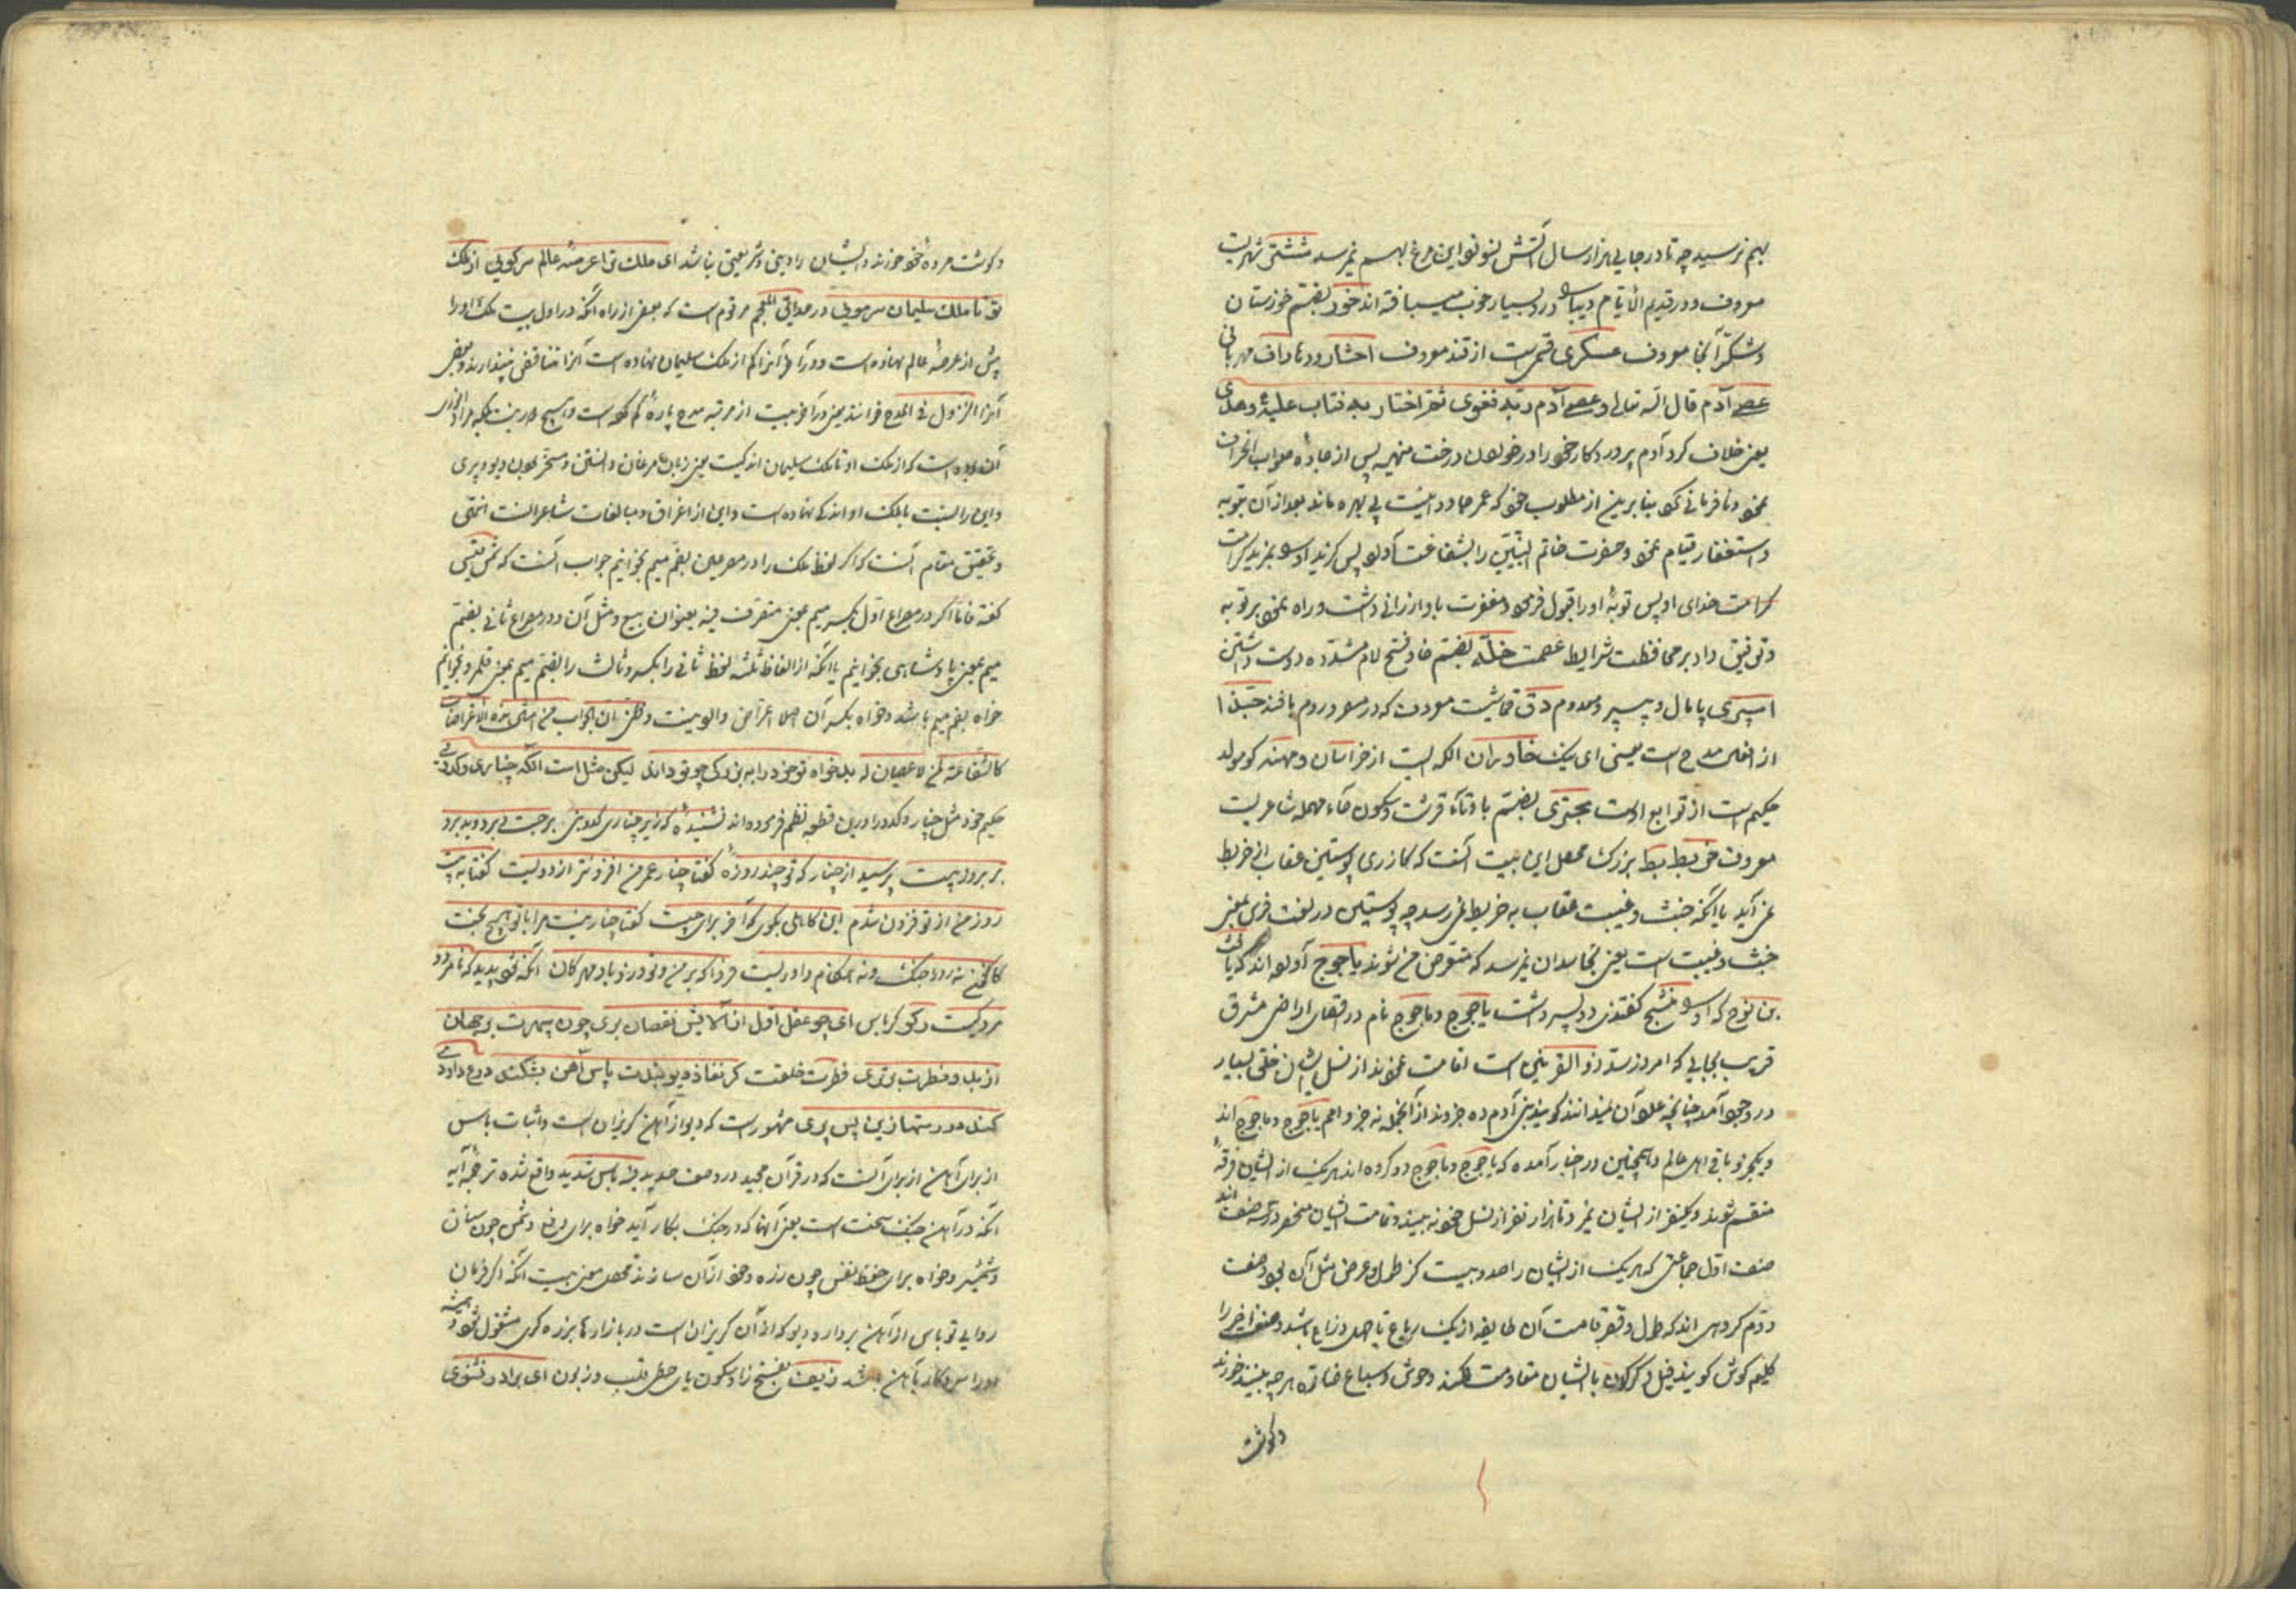 بهم نرسید چه تا در جایی هزار سال آتش نسوزد این مرغ بهم نمیرسد ششتر شهریست
معروف و در قدیم الایام دیبا درو بسیار خوب میبافته‌اند خوز بضم خوزستان
و شکر آنجا معروف عسکری قسمی است از قند معروف
عصی آدم قال الله تعالی و عصی آدم ربه فغوی ثم اجتباه ربه فتاب علیه و هدی
یعنی خلاف کرد آدم پروردگار خود را در خوردن درخت منهیه پس از جادهٔ صواب انحراف
نمود و نافرمانی کرد بنابرین از مطلوب خود که عمر جاودانیست بی بهره ماند بعد از آن بتوبه
و استغفار قیام نمود و حضرت خاتم النبیین را بشفاعت آورد پس برگزید او را بمزید کرامت
کرامت خدای او پس توبهٔ او را قبول فرمود و مغفرت باو ارزانی داشت و راه نمود بر توبه
و توفیق داد بر محافظت شرایط عصمت خلّه بضم خا و فتح لام مشدده دوست داشتن
اسپری پامال و پی سپر و معدوم دق قماشیست معروف که در مصر و روم بافند حبذا
از افعال مدح است یعنی ای نیک خاوران الکه ایست از خراسان و مهنه که مولد
حکیم است از توابع اوست بحتری بضم با و تاء قرشت و سکون حاء مهمله شاعریست
معروف خربط بط بزرگ محصل این بیت آنست که گازری پوستین عقاب از خربط
نمی آید یا آنکه خبث و غیبت عقاب به خربط نمیرسد چه پوستین در لغت فرس بمعنی
خبث و غیبت است یعنی بحاسدان نمیرسد که متعرض من شوند یاجوج آورده‌اند که یافث
بن نوح که او را منشج گفتندی دو پسر داشت یاجوج و ماجوج نام در اقصای اراضی مشرق
قریب بجایی که امروز سد ذوالقرنین است اقامت نمودند از نسل ایشان خلقی بسیار
در وجود آمد چنانچه علم آن میدانند گویند بنی آدم ده جزوند از آنجمله نه جزو امم یاجوج و ماجوج‌اند
و یکجزو باقی اهل عالم و همچنین در اخبار آمده که یاجوج و ماجوج دو گروه‌اند هریک از ایشان فرقهٔ
منقسم شوند و یکنفر از ایشان نمیرد تا هزار نفر از نسل خود نه بیند و تمامت ایشان منحصر در سه صنف‌اند
صنف اول جماعتی که هریک از ایشان را صد و بیست گز طول و عرض مثل آن بود صنف
دوم گروهی‌اند که طول و قصر قامت آن طایفه از یک رباع تا چهل ذراع باشد و صنف اخیر را
گلیم گوش گویند فیل و کرگدن با ایشان مقاومت نکند و حوش و سباع هرچه بینند خورند
و گوشت
و گوشت مردهٔ خود خورند و ایشان را دینی و شریعتی نباشد ای ملک ترا عرصهٔ عالم سر کویی از ملک
تو تا ملک سلیمان سر مویی در حدایق العجم مرقوم است که بعضی از راه آنکه در اول بیت ملک او را
پیش از عرصهٔ عالم نهاده است و در آخر آنرا کم از ملک سلیمان نهاده است آنرا تناقض پندارند و بعضی
آنرا النزول فی المدح خوانند یعنی در آخر بیت از مرتبه مدح پارهٔ کم کرده است و هیچ در نیست بلکه مراد انوری
آن بوده است که از ملک او تا ملک سلیمان اندکیست یعنی زبان مرغان دانستن و مسخر بودن دیو و پری
و این را نسبت با ملک او اندک نهاده است و این از اغراق و مبالغات شاعرانست انتهی
و تحقیق مقام آنست که اگر لفظ ملک را در مصرعین بضم میم بخوانیم جواب آنست که
گفته فاما اگر در مصراع اول بکسر میم بمعنی متصرف فیه بعنوان بیع و مثل آن و در مصراع ثانی بضم
میم بمعنی پادشاهی بخوانیم یا آنکه از الفاظ ثلثه لفظ ثانی را بکسر و ثالث را بضم میم بمعنی قلمرو بخوانیم
خواه بضم میم باشد و خواه بکسر آن اصلا اعتراض وارد نیست و ظن ان الجواب من امثال هذه الاعتراضات
کالشفاعة لمن لا عصیان له بدخواه تو خود را به بزرگی چو تو دارد لیکن مثل است آنکه چناری و کدویی
حکیم خود مثل چنار و کدو را درین قطعه نظم فرموده‌اند نشنیدهٔ که زیر چناری کدوبنی بر جست و بر دوید برو
بر بروز بیست پرسید از چنار که تو چند روزهٔ گفتا چنار عمر من افزونتر از دویست گفتا به بیست
روز من از تو فزون شدم این کاهلی بگوی که آخر برای چیست گفتا چنار نیست مرا با تو هیچ بحث
کاکنون نه روز جنگ و نه هنگام داوریست فردا که بر من و تو وزد باد مهرگان آنگه شود پدید که نامرد و
مرد کیست رکو کرباس ای چو عقل اول از آلایش نقصان بری چون سپهرت بر جهان
از بدو فطرت برتری فطرت خلقت گر نفاذ دیو بندت باس آهن بشکند درع داود
کند در دستها زین پس پری مشهور است که دیو از آهن گریزان است و اثبات باس
از برای آهن از برای آنست که در قرآن مجید در وصف حدید فیه باس شدید واقع شده ترجمهٔ آیه
آنکه در آهن جنگ سخت است یعنی آنها که در جنگ بکار آید خواه برای دفع دشمن چون سنان
و شمشیر و خواه برای حفظ نفس چون زره و خود از آن سازند محصل معنی بیت آنکه اگر فرمان
روایی تو باس از آهن بردارد دیو که از آن گریزان است در بازارها بزره گری مشغول شود و همیشه
او را سر و کار با آهن باشد زیف بفتح زا و سکون یای حطی قلب و زبون ای برادر بشنوی